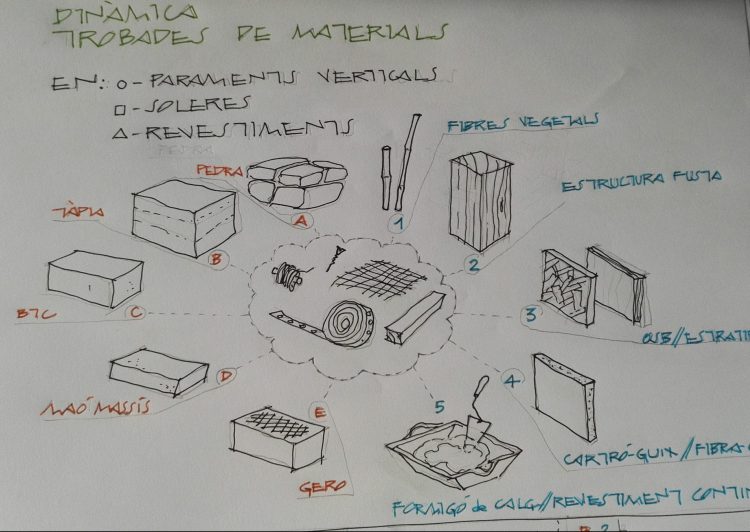 DINÀMICA
TROBADES DE MATERIALS
EN: ○ - PARAMENTS VERTICALS
□ - SOLERES
△ - REVESTIMENTS
PEDRA
A
TÀPIA
B
BTC
C
MAÓ MASSÍS
D
GERO
E
FIBRES VEGETALS
1
ESTRUCTURA FUSTA
2
OSB//ESTRATIF
3
CARTRÓ-GUIX//FIBRA-
4
FORMIGÓ de CALÇ//REVESTIMENT CONTIN
5